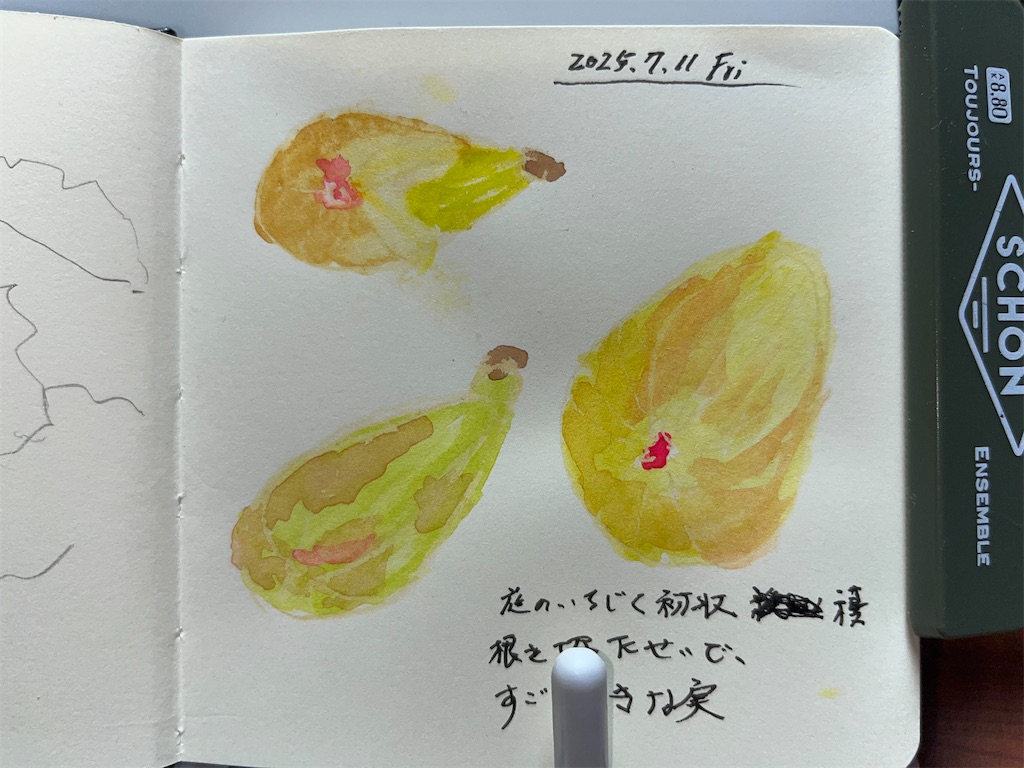 2025.7.11 Fri
庭のいちじく初収穫
根を た せいで、
すご きな実
8.80
TOUJOURS-
SCHON
ENSEMBLE